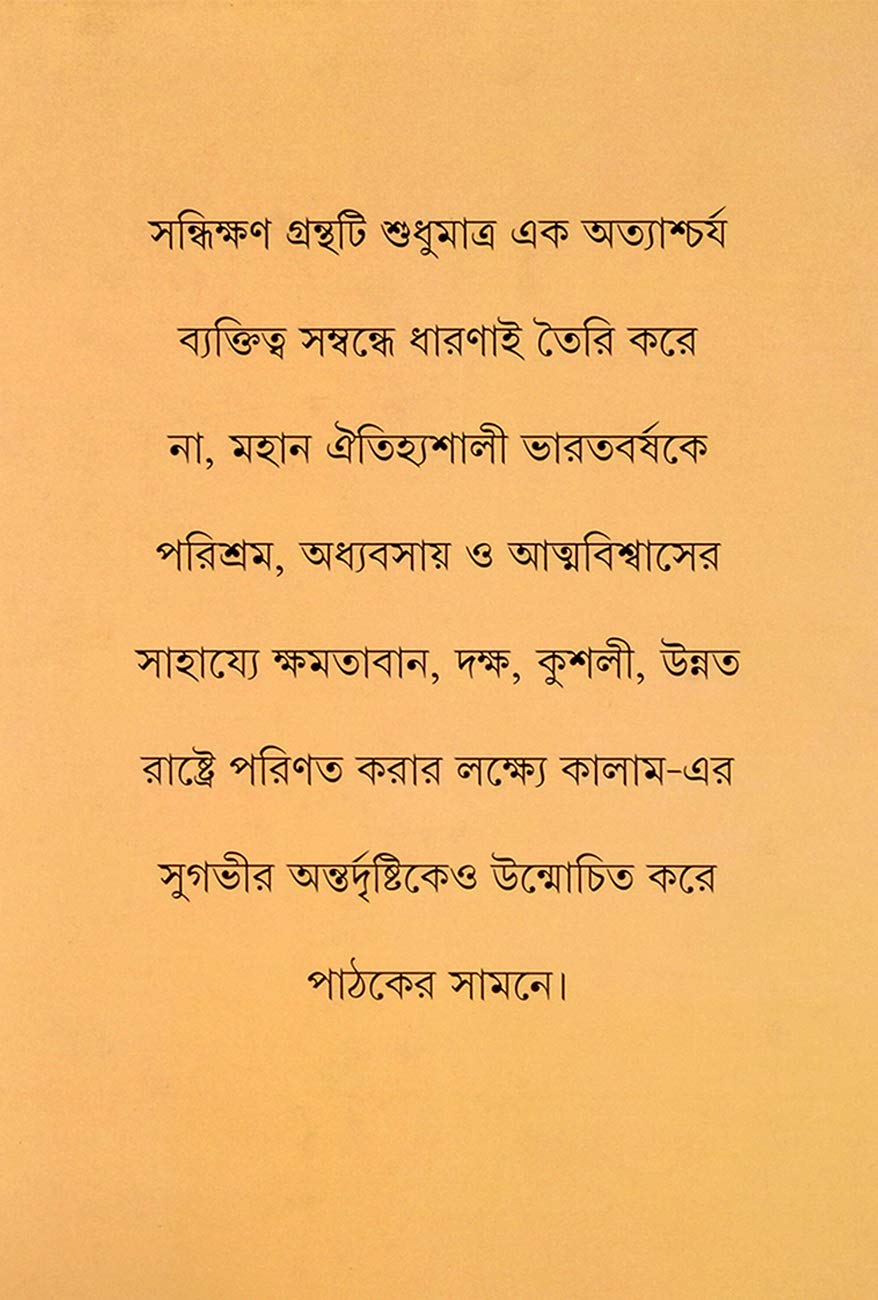 সন্ধিক্ষণ গ্রন্থটি শুধুমাত্র এক অত্যাশ্চর্য
ব্যক্তিত্ব সম্বন্ধে ধারণাই তৈরি করে
না, মহান ঐতিহ্যশালী ভারতবর্ষকে
পরিশ্রম, অধ্যবসায় ও আত্মবিশ্বাসের
সাহায্যে ক্ষমতাবান, দক্ষ, কুশলী, উন্নত
রাষ্ট্রে পরিণত করার লক্ষ্যে কালাম-এর
সুগভীর অন্তর্দৃষ্টিকেও উন্মোচিত করে
পাঠকের সামনে।